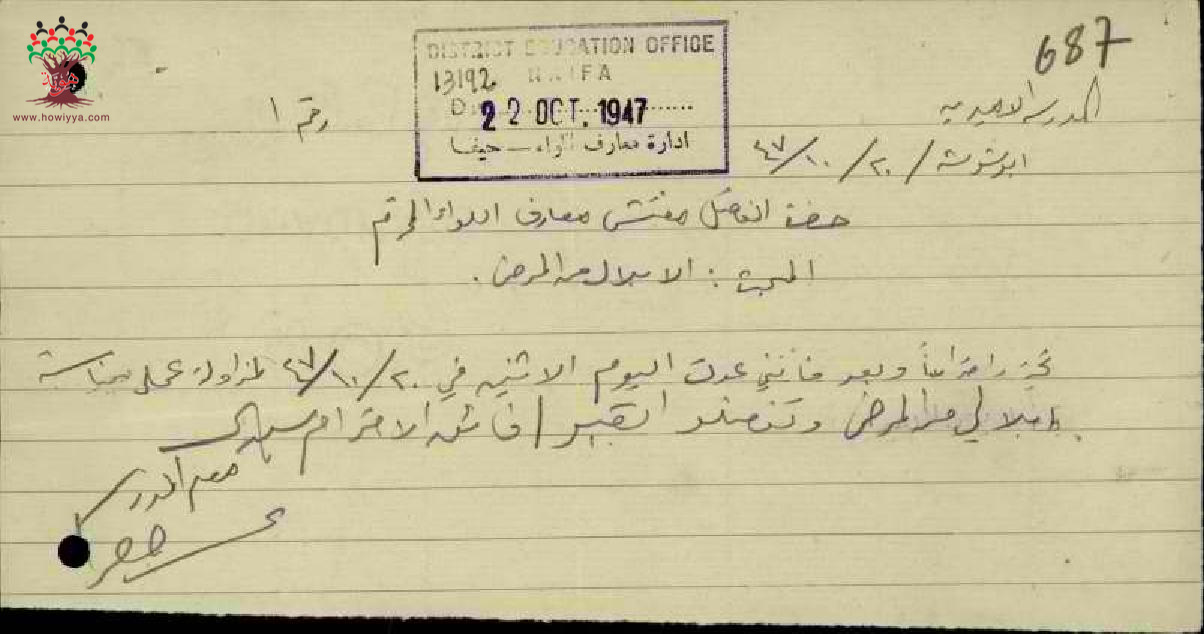 687
DISTRICT EDUCATION OFFICE
13192 HAIFA
22 OCT. 1947
ادارة معارف اللواء - حيفا
رقم ١
المدرسة الاميرية
ابوشوشة / ٢٠ / ١٠ / ٤٧
حضرة الفاضل مفتش معارف اللواء المحترم
المبحث : الابلال من المرض .
تحية واحتراماً وبعد فانني عدت اليوم الاثنين في ٢٠ / ١٠ / ٤٧ لمزاولة عملي بمناسبة
ابلالي من المرض وتفضلوا بقبول فائق الاحترام سيدي
معلم المدرسة
هوية
www.howiyya.com